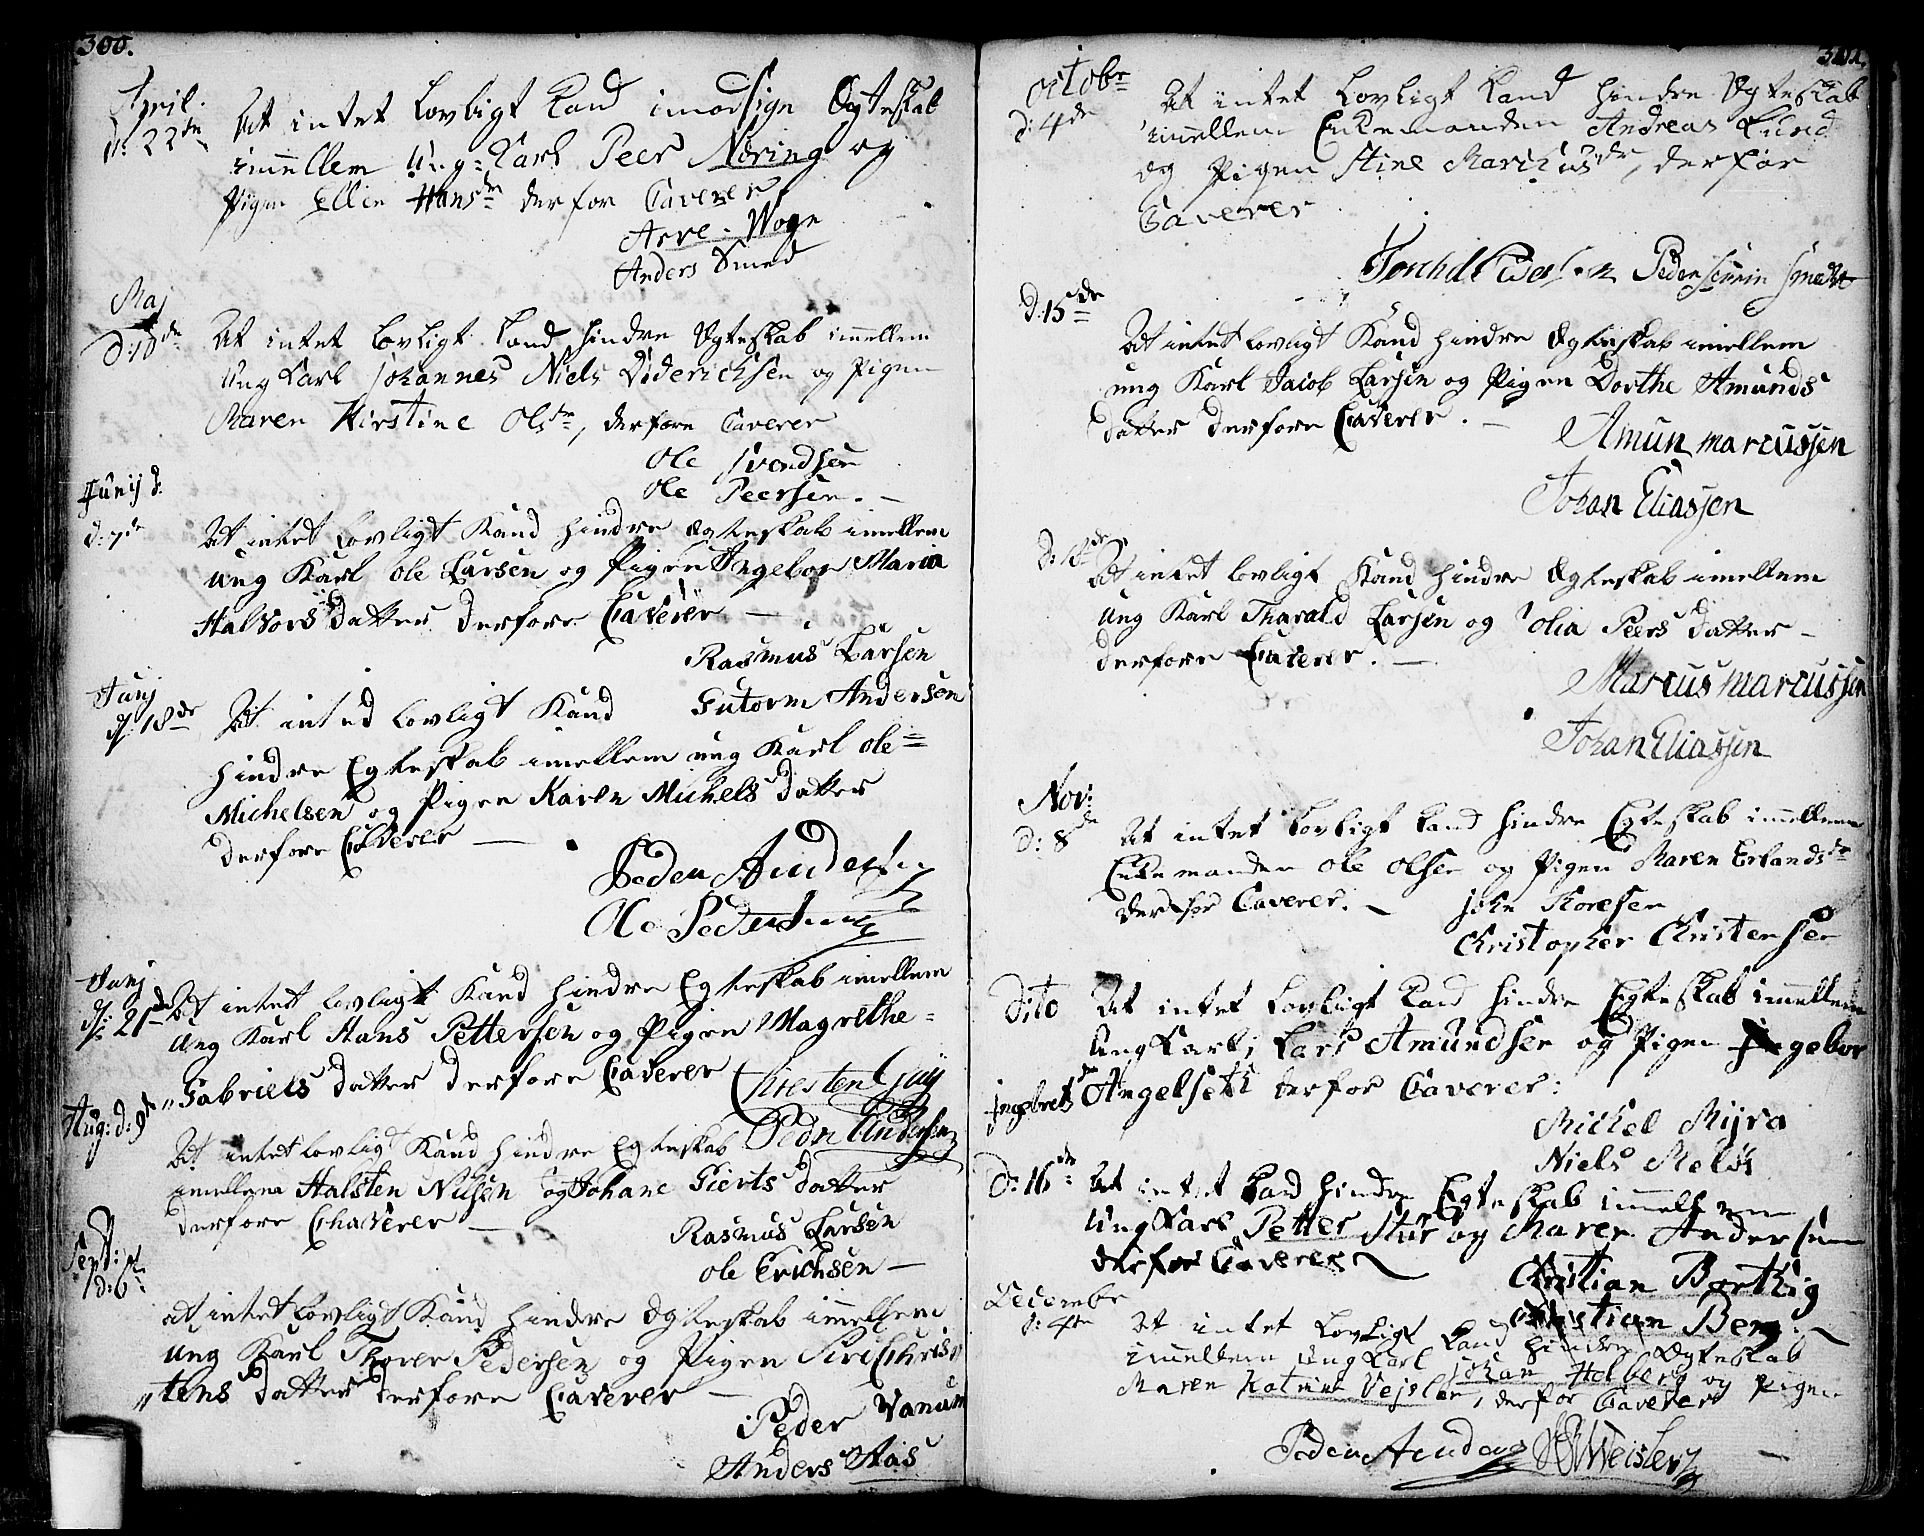 300.
April.
d: 22de
At intet Lovligt Kand imodsign Ægteskab
imellem Ung: Karl Peer Næring og
Pigen Ellin Hansdr derfor Caverer
Arve. Woge
Anders Smed
Maj
d: 10de
At intet Lovligt Kand hindre Ægteskab imellem
Ung Karl Johannes Niels Diderichsen og Pigen
Maren Kirstine Olsdr, derfore Caverer
Ole Svendsen
Ole Peersen.
Junij d:
d: 7de
At intet Lovligt Kand hindre Ægteskab imellem
Ung Karl Ole Larsen og Pigen Ingebor Maria
Halvors Datter derfore Caverer
Rasmus Larsen
Gutorm Andersen
Junj
d: 18de
At inted lovligt Kand
hindre Egteskab imellem ung Karl ole
Michelsen og Pigen Karen Michels Datter
derfore Caverer
Peder Andersen
Ole Pedersen
Junj
d: 21de
At intet lovligt Kand hindre Egteskab imellem
Ung Karl Hans Pettersen og Pigen Magrethe
Gabriels Datter derfore Caverer
Chresten Gaij
Peder Andersen
Aug: d: 9de
At intet lovligt Kand hindre Egteskab
imellem Halsten Nilsen og Johane Gierts Datter
derfore Chaverer
Rasmus Larsen
ole Erichsen
Sept:
d: 6te
at intet Lovligt Kand hindre Ægteskab imellem
Ung Karl Thorer Pedersen og Pigen Siri Chris
tens Datter derfore Caverer
Peder Vanum
Anders Aas
301.
Octobr
d: 4de
At intet Lovligt Kand hindre Ægteskab
imellem Enkemanden Andreas Lund
og Pigen Stine Marckusdr, derfor
Caverer
Peder Smedt
d: 15de
At intet lovligt Kand hindre Ægteskab imellem
ung Karl Jacob Larsen og Pigen Dorthe Amunds
datter derfore Caverer.
Amun marcussen
Johan Eliassen
At intet lovligt Kand hindre Ægteskab imellem
Ung Karl Tharald Larsen og Olia Peers Datter
derfore Caverer.
Marcus marcussen
Johan Eliassen
Nov:
d: 8de
At intet Lovligt Kand hindre Egteskab imellem
Enkemanden Ole Olsen og Pigen Maren Erlandsdr
derfor Caverer.
John Koresen
Christopher Christensen
Dito
At intet Lovligt Kand hindre Egteskab imellem
Ung Karl, Lars Amundsen og Pigen Ingebor
Ingebretsdr Angelseth derfor Caverer:
Michel Mijra
Niels Melsk
d: 16de
At intet Kand hindre Egteskab imellem
Ung Karl Petter Stur og Maren Andersen
derfor Caverer
Christian Borthig
Christian Berg.
Decembr
d: 4de
At intet Lovligt Kand hindre Ægteskab
imellem Ung Karl Johan Holberg og Pigen
Maren Katrine Vejsler, derfor Caverer
Peder Anders
Weisler